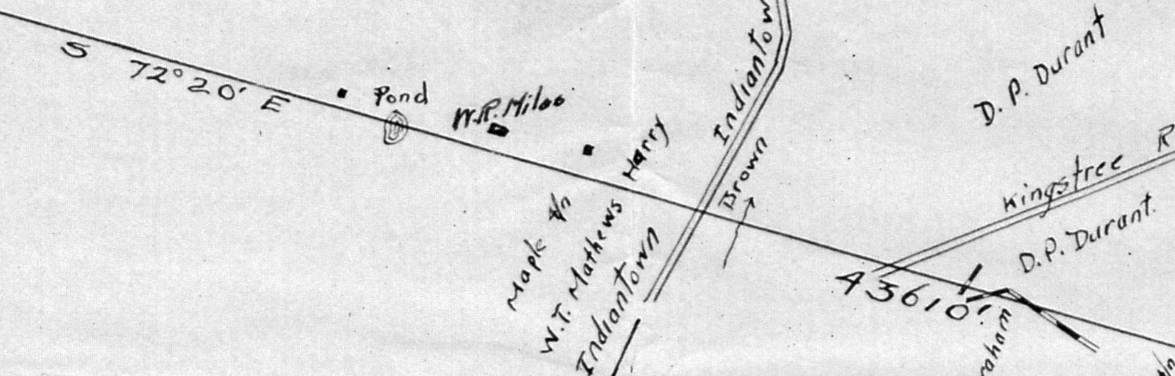 S 72° 20' E
Pond
W.R. Miles
Maple
W.T. Mathews
Harry
Indiantown
Indiantow
Brown
D. P. Durant
Kingstree R
D. P. Durant.
43610'
raham